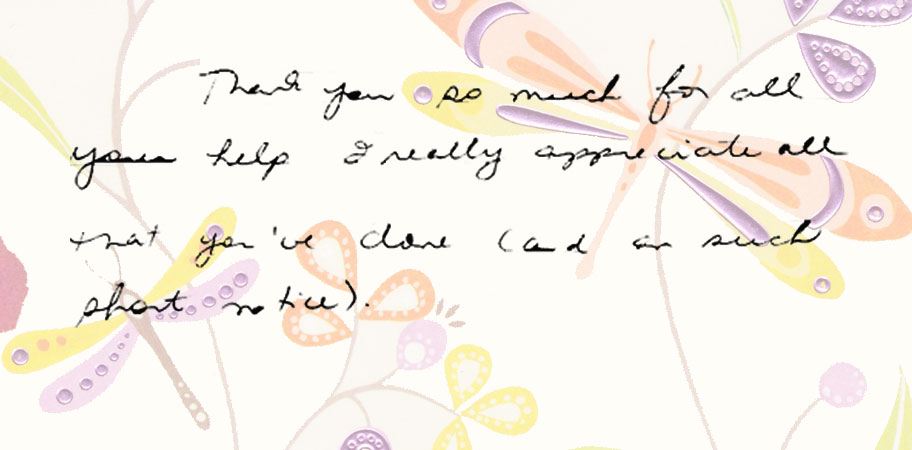 Thank you so much for all
your help I really appreciate all
that you've done (and on such
short notice).